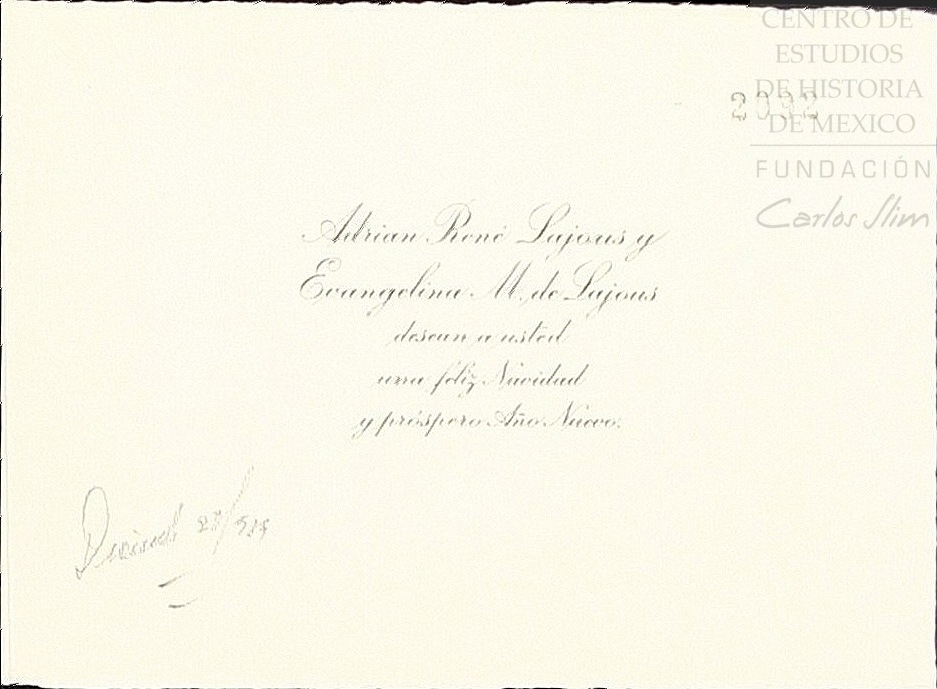 CENTRO DE
ESTUDIOS
DE HISTORIA
DE MEXICO
FUNDACIÓN
Carlos Slim
2092
Adrian René Lajous y
Evangelina M. de Lajous
desean a usted
una feliz Navidad
y próspero Año Nuevo.